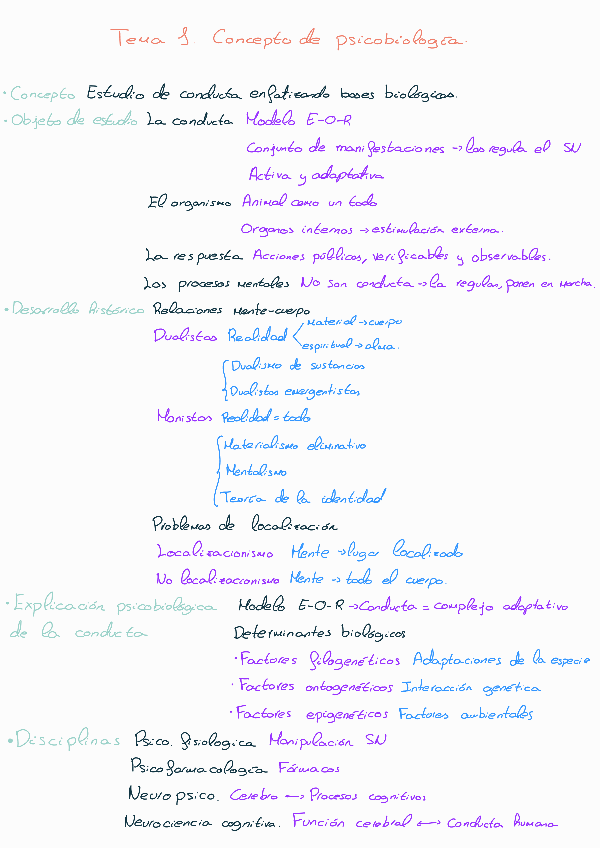 Tema 1. Concepto de psicobiología.
• Concepto Estudio de conducta enfatizando bases biológicas.
• Objeto de estudio La conducta Modelo E-O-R
Conjunto de manifestaciones → las regula el SN
Activa y adaptativa
El organismo Animal como un todo
Organos internos → estimulación externa.
La respuesta Acciones públicas, verificables y observables.
Los procesos mentales No son conducta → la regulan, ponen en marcha.
• Desarrollo histórico Relaciones mente-cuerpo
Dualistas Realidad Material → cuerpo
espiritual → alma.
Dualismo de sustancias
Dualistas emergentistas
Monistas Realidad = todo
Materialismo eliminativo
Mentalismo
Teoría de la identidad
Problemas de localización
Localizacionismo Mente → lugar localizado
No localizacionismo Mente → todo el cuerpo.
• Explicación psicobiológica Modelo E-O-R → Conducta = complejo adaptativo
de la conducta Determinantes biológicos
• Factores filogenéticos Adaptaciones de la especie
• Factores ontogenéticos Interacción genética
• Factores epigenéticos Factores ambientales
• Disciplinas Psico. fisiologica Manipulación SN
Psicofarmacología Fármacos
Neuropsico. Cerebro ↔ Procesos cognitivos
Neurociencia cognitiva. Función cerebral ↔ Conducta humana